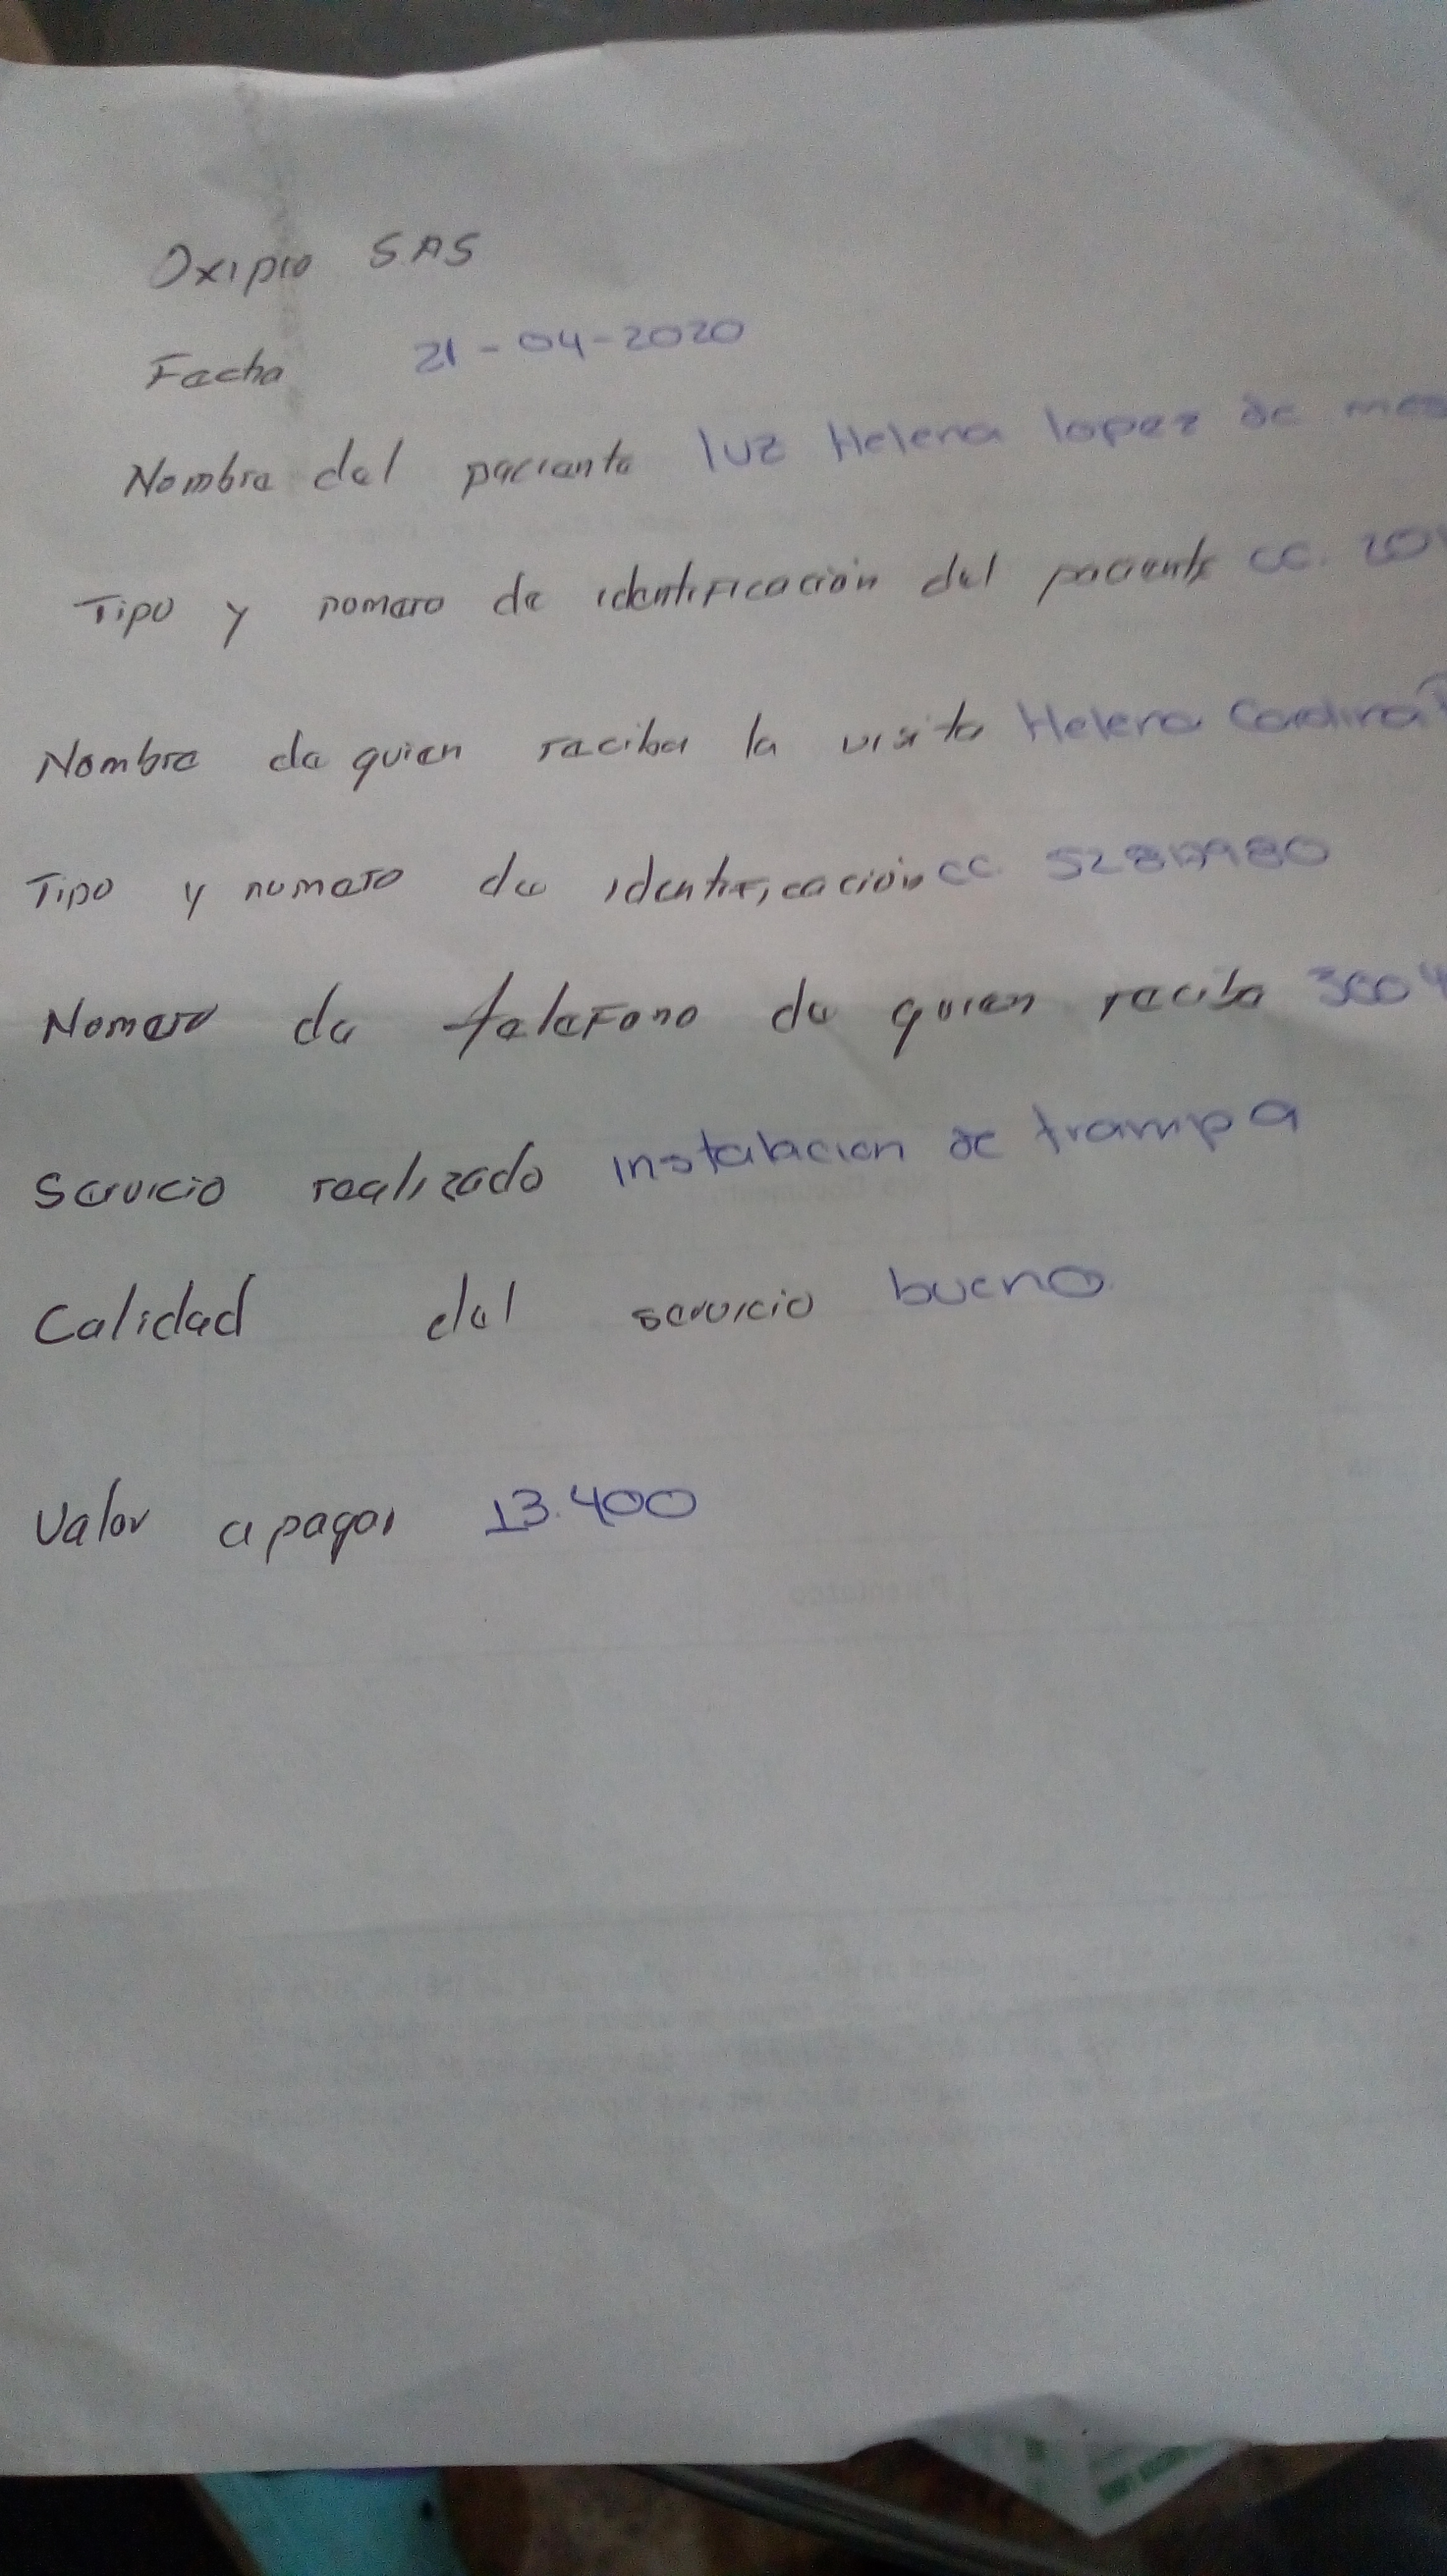 Oxipro SAS
Fecha 21-04-2020
Nombre del paciente luz Helena lopez de
Tipo y nomero de identificación del paciente cc.
Nombre de quien recibe la visita Helena
Tipo y numero de identificación cc.
Nomero de telefono de quien recibe 3004
Servicio realizado instalacion de trampa
Calidad del servicio bueno.
Valor a pagar 13.400